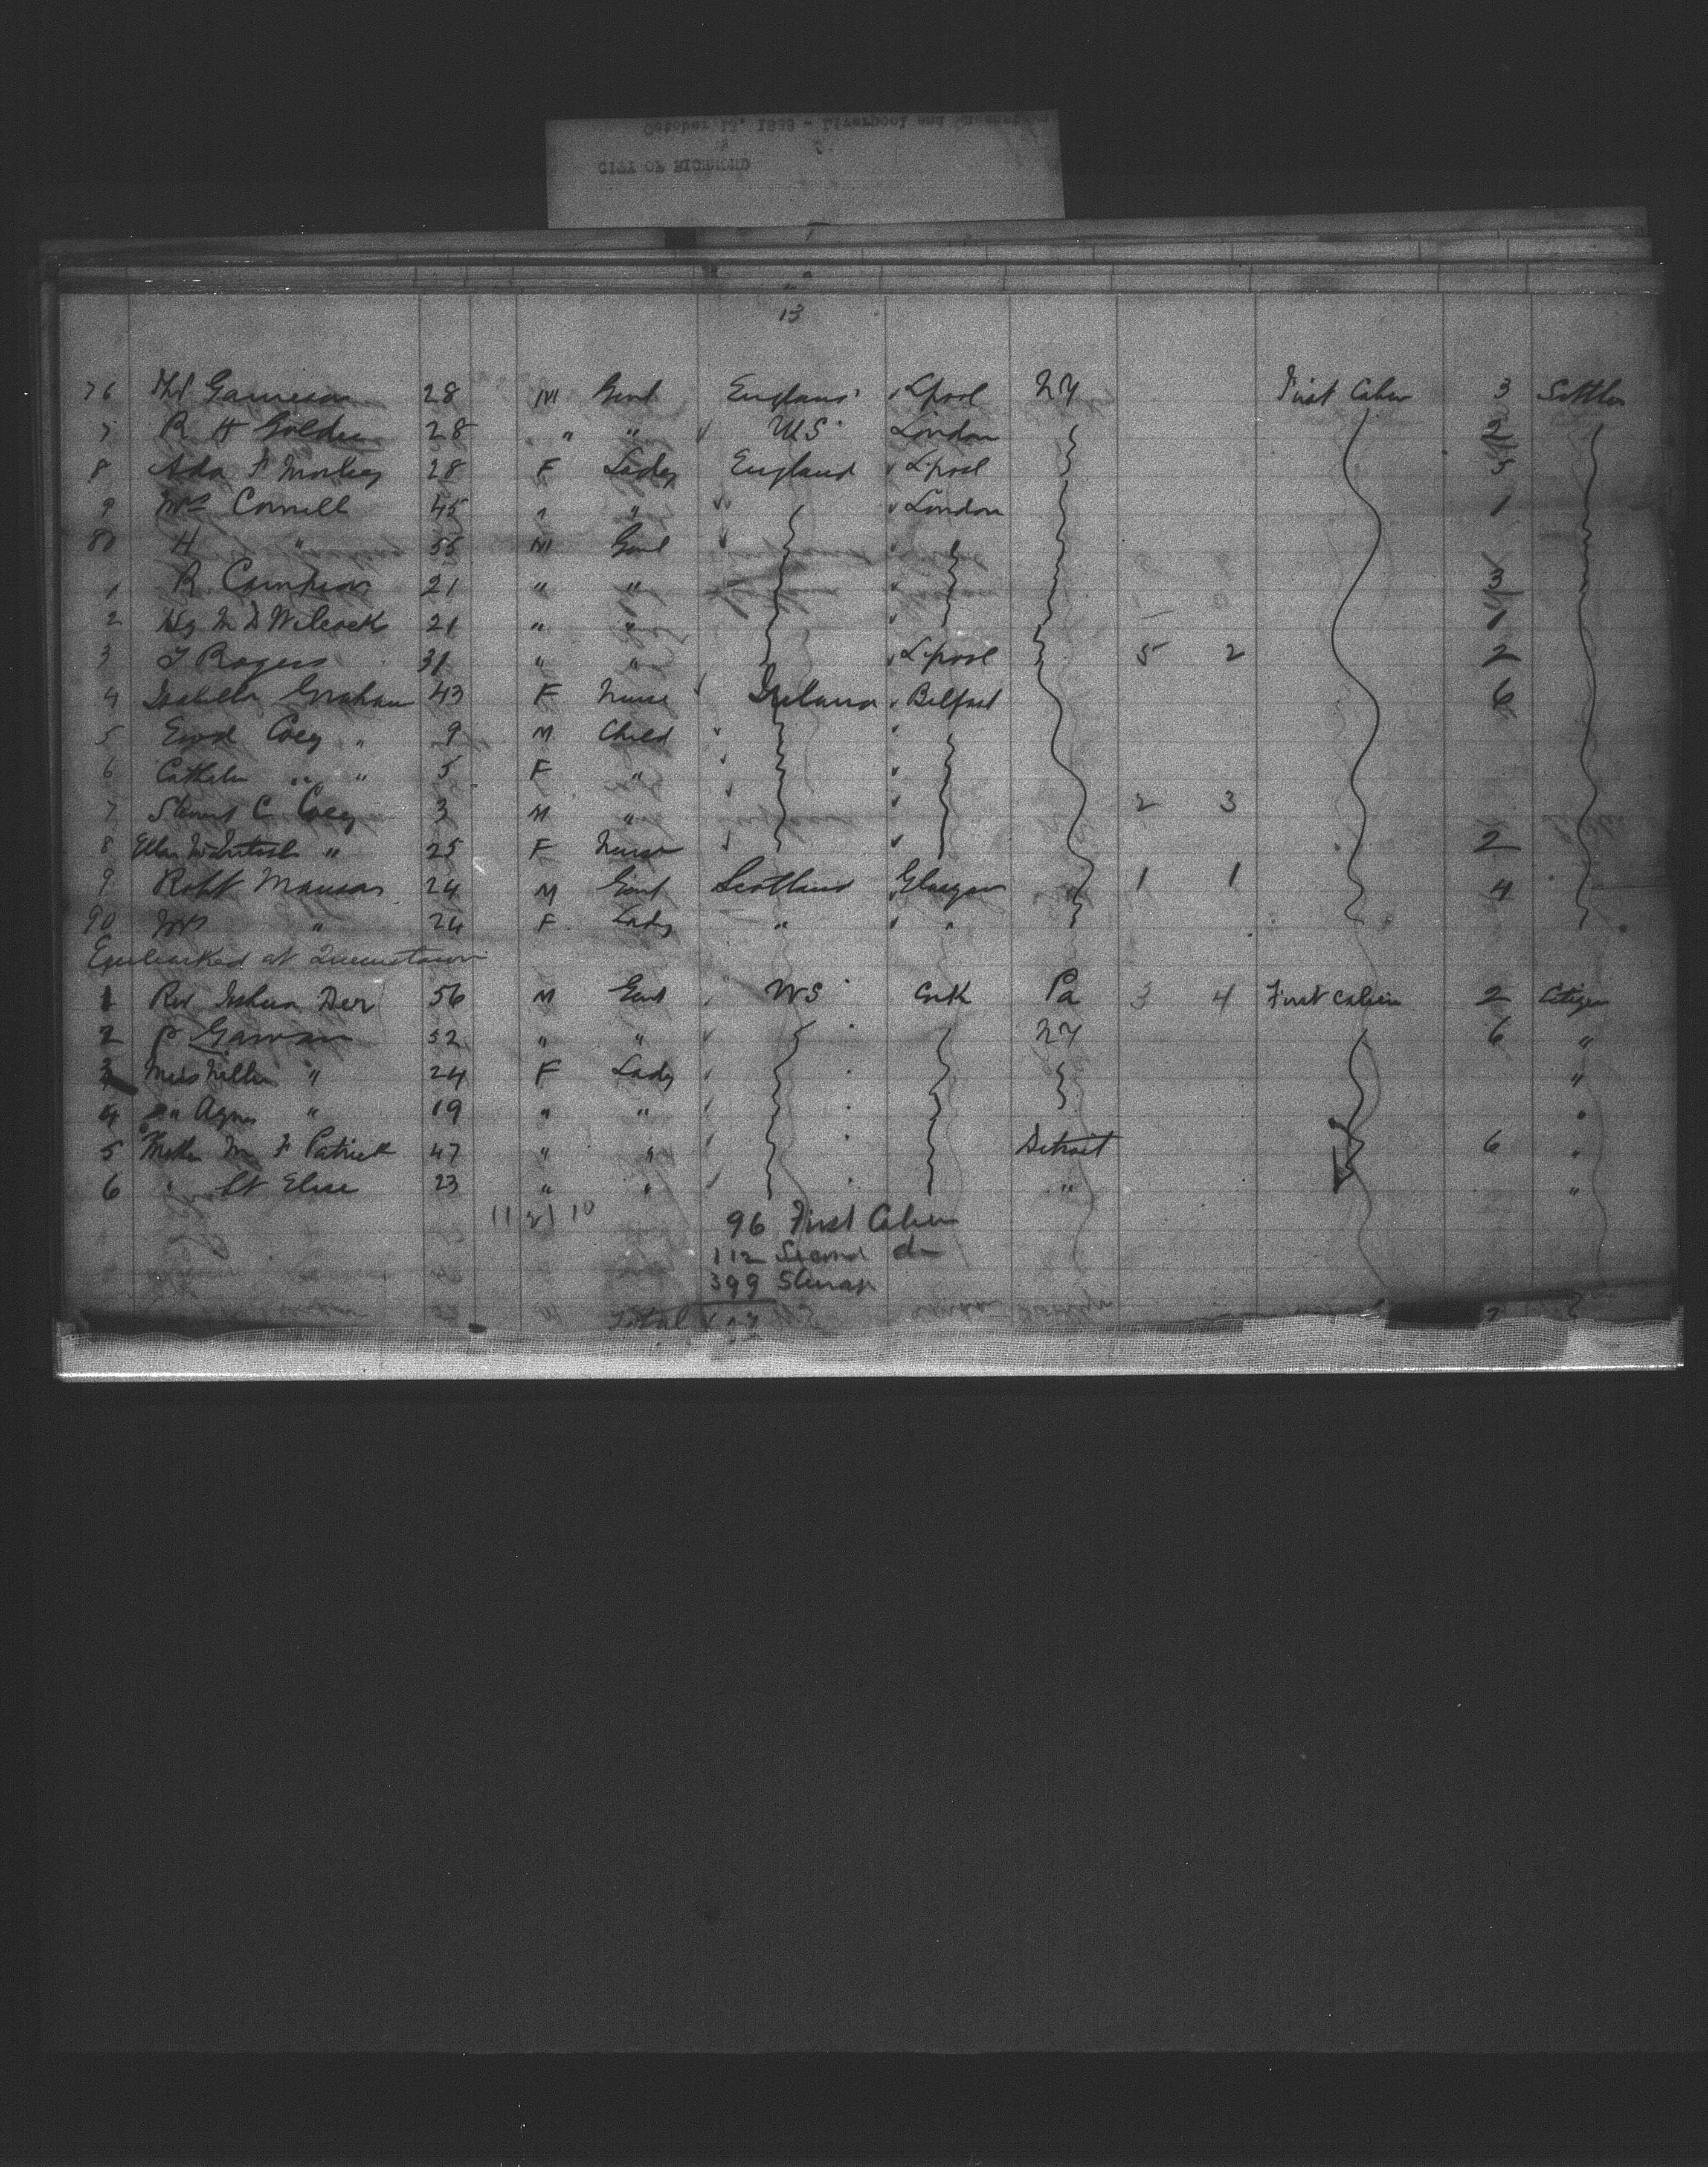 October 12, 1888 - Liverpool and Queenstown
CITY OF RICHMOND
13
76 Gameson 28 M Gent England Lpool NY First Cabin 3 Settler
7 R H Golden 28 " " US London 2
8 Ada F Morley 28 F Lady England Lpool 5
9 Mrs Cornell 45 " " " London 1
80 H " 55 M Gent
1 R Campion 21 " " 3
2 Hy M D Wilcock 21 " " 1
3 T Rogers 31 " " Lpool 5 2 2
4 Isabella Graham 43 F Nurse Ireland Belfast 6
5 Coey " 9 M Child " "
6 " " 5 F "
7 Stewart C Coey 3 M " 2 3
8 Ellen McIntosh " 25 F Nurse 2
9 Robt Manson 24 M Gent Scotland Glasgow " 1 1 4
90 Mrs " 24 F Lady " "
Embarked at Queenstown
1 Rev Der 56 M Gent US Cork Pa 3 4 First Cabin 2 Citizen
2 P Garvan 52 " " NY 6 "
3 Miss Nellie " 24 F Lady "
4 " Agnes " 19 " " "
5 Mother M F Patrick 47 " " Detroit 6 "
6 " St Elise 23 " " " "
11 2 10 96 First Cabin
112 Second do
399 Steerage
Total